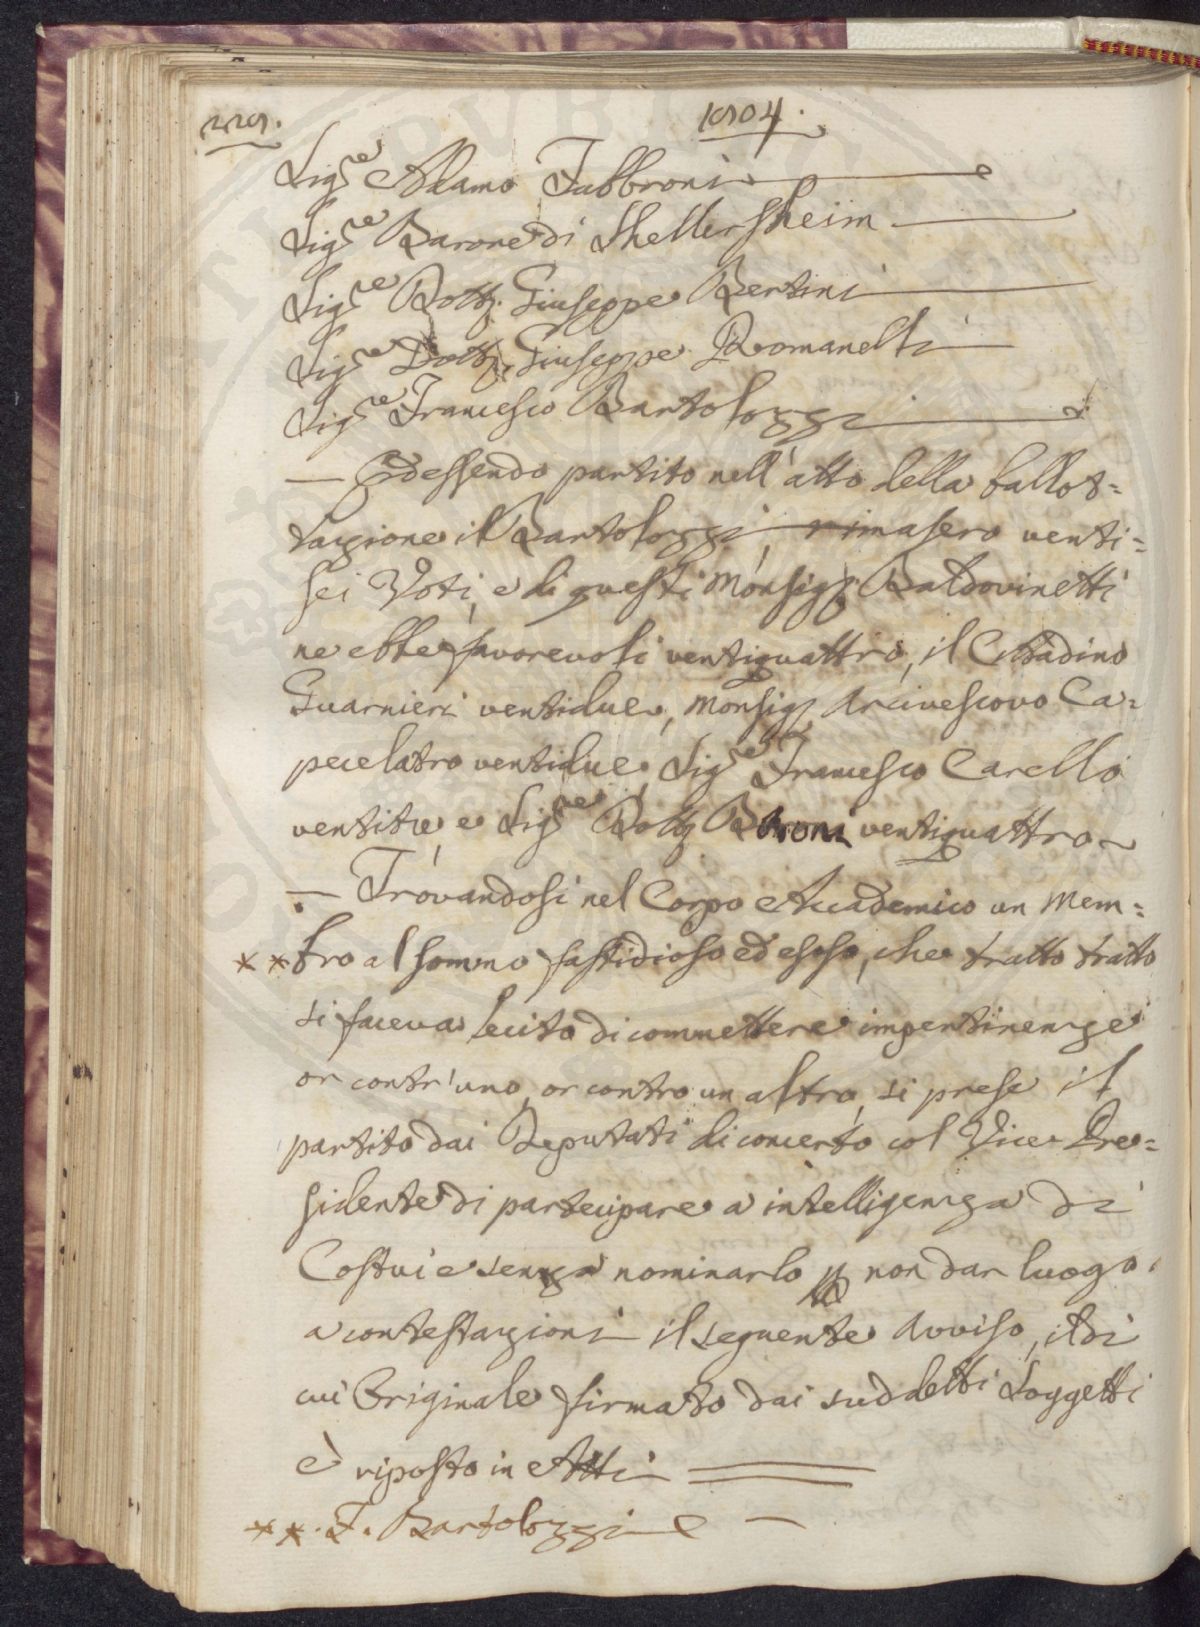 1804.
Sig.re Adamo Fabbroni
Sig.re Barone di Shellersheim
Sig.re Dott. Giuseppe Bertini
Sig.re Dott. Giuseppe Romanelli
Sig.re Francesco Bartolozzi
— Ed essendo partito nell'atto della ballot=
tazione il Bartolozzi, rimasero venti=
sei Voti, e di questi Monsig. Baldovinetti
ne ebbe favorevoli ventiquattro, il Cittadino
Guarnieri ventidue, Monsig. Arcivescovo Ca=
pecelatro ventidue, Sig.re Francesco Carelli
ventitre, e Sig.re Dott. Baroni ventiquattro
— Trovandosi nel Corpo Accademico un Mem=
** bro al sommo fastidioso ed esoso, che tratto tratto
si faceva lecito di commettere impertinenze
or contr'uno, or contro un altro, si prese il
partito dai Deputati di concerto col Vice-Pre=
sidente di partecipare a intelligenza di
Costui e senza nominarlo p non dar luogo
a contestazioni il seguente Avviso, il di
cui Originale firmato dai suddetti Soggetti
è riposto in Atti
**. F. Bartolozzi —